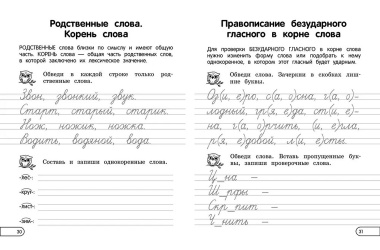 Родственные слова.
Корень слова
РОДСТВЕННЫЕ СЛОВА близки по смыслу и имеют общую
часть. КОРЕНЬ слова — общая часть родственных слов,
в которой заключено их лексическое значение.
Обведи в каждой строке только род-
ственные слова.
Звон, звонкий, звук.
Старт, старый, старик.
Нож, ножик, ножка.
Водить, водяной, вода.
Составь и запиши однокоренные слова.
-лес-
-круг-
-зим-
30
Правописание безударного
гласного в корне слова
Для проверки БЕЗУДАРНОГО ГЛАСНОГО в корне слова
нужно изменить форму слова или подобрать к нему
однокоренное, в котором этот гласный будет ударным.
Обведи слова. Зачеркни в скобках лиш-
ние буквы.
Оз(и, е)ро, с(а, о)сна, г(а, о)-
лодный, гр(я, е)да, ст(и, е)-
на, г(а, о)рчить, (и, е)гла,
р(я, е)довой, л(и, е)сты.
Обведи слова. Вставь пропущенные бук-
вы, запиши проверочные слова.
Ц_на –
Ш_рфы –
Скр_пит –
Ч_нить –
31